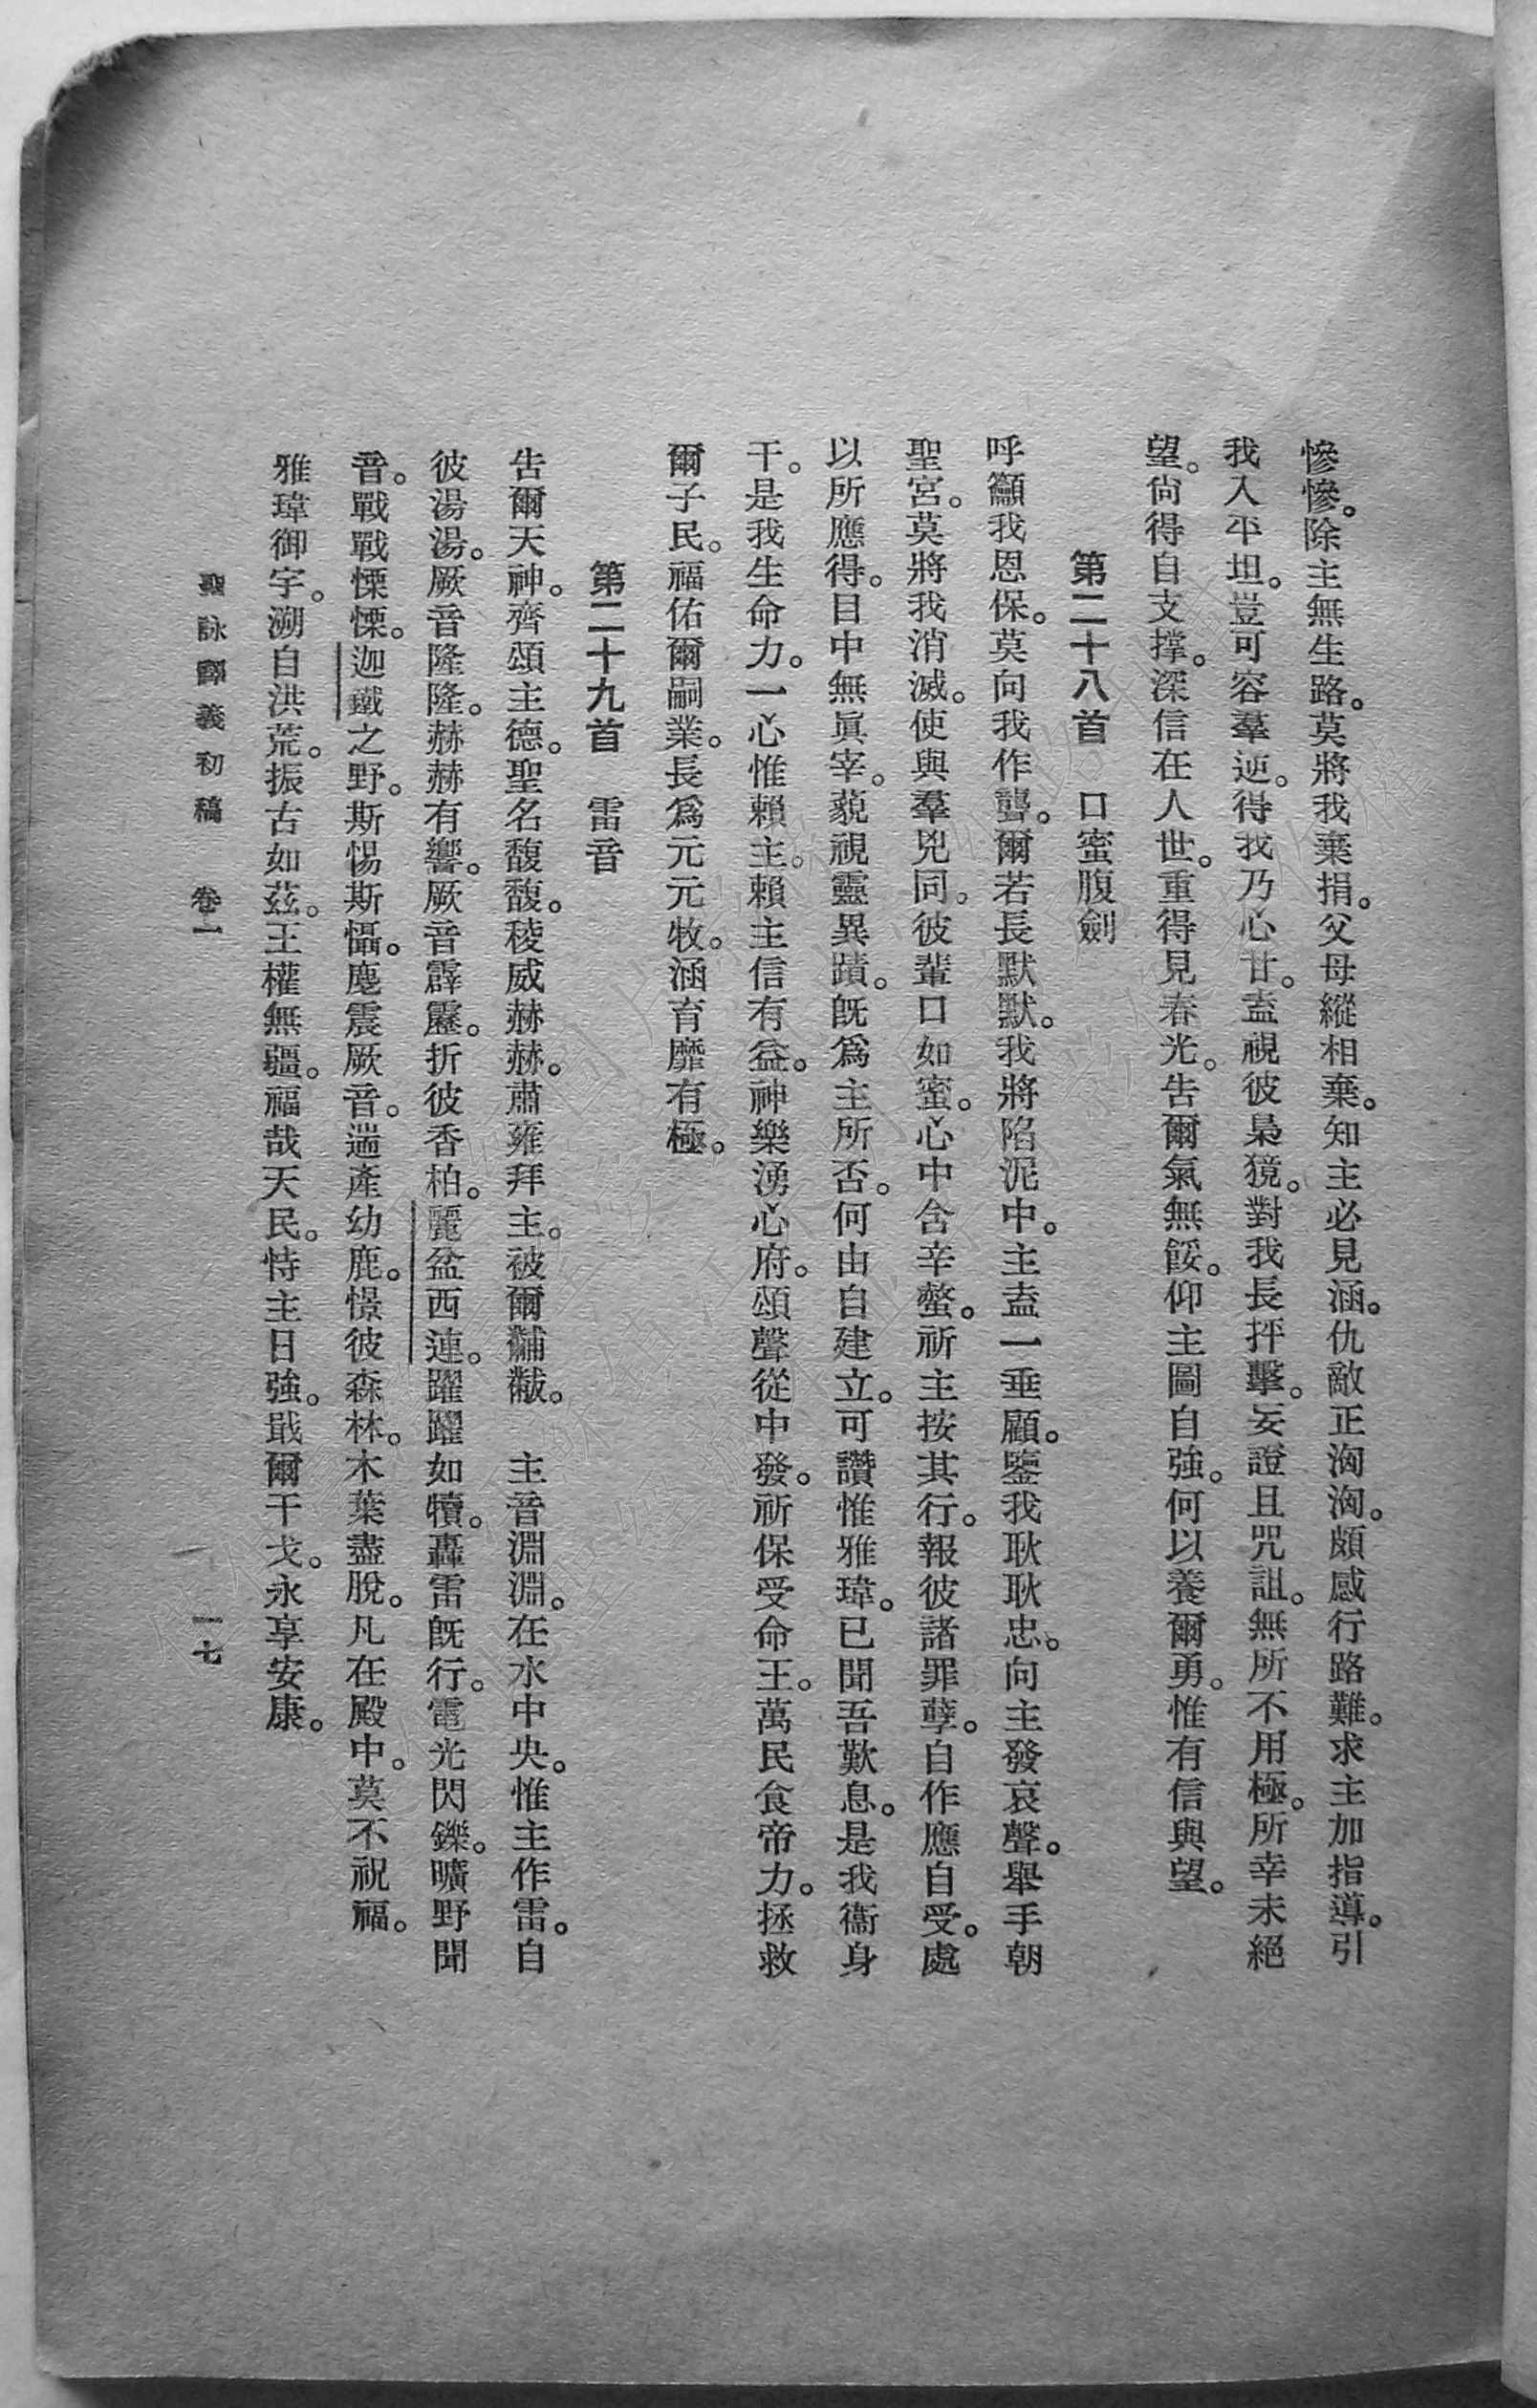 慘慘。除主無生路。莫將我棄捐。父母縱相棄。知主必見涵。仇敵正洶洶。頗感行路難。求主加指導。引
我入平坦。豈可容羣逆。得我乃心甘。盍視彼梟獍。對我長抨擊。妄證且咒詛。無所不用極。所幸未絕
望。尙得自支撐。深信在人世。重得見春光。告爾氣無餒。仰主圖自強。何以養爾勇。惟有信與望。
第二十八首　口蜜腹劍
呼籲我恩保。莫向我作聾。爾若長默默。我將陷泥中。主盍一垂顧。鑒我耿耿忠。向主發哀聲。舉手朝
聖宮。莫將我消滅。使與羣兇同。彼輩口如蜜。心中含辛螫。祈主按其行。報彼諸罪孽。自作應自受。處
以所應得。目中無眞宰。藐視靈異蹟。旣爲主所否。何由自建立。可讚惟雅瑋。已聞吾歎息。是我衞身
干。是我生命力。一心惟賴主。賴主信有益。神樂湧心府。頌聲從中發。祈保受命王。萬民食帝力。拯救
爾子民。福佑爾嗣業。長爲元元牧。涵育靡有極。
第二十九首　雷音
告爾天神。齊頌主德。聖名馥馥。稜威赫赫。肅雍拜主。被爾黼黻。　主音淵淵。在水中央。惟主作雷。自
彼湯湯。厥音隆隆。赫赫有響。厥音霹靂。折彼香柏。麗盆西連。躍躍如犢。轟雷旣行。電光閃鑠。曠野聞
音。戰戰慄慄。迦鐵之野。斯惕斯懾。麀震厥音。遄產幼鹿。憬彼森林。木葉盡脫。凡在殿中。莫不祝福。
雅瑋御宇。溯自洪荒。振古如茲。王權無疆。福哉天民。恃主日強。戢爾干戈。永享安康。
聖詠譯義初稿　卷一　一七